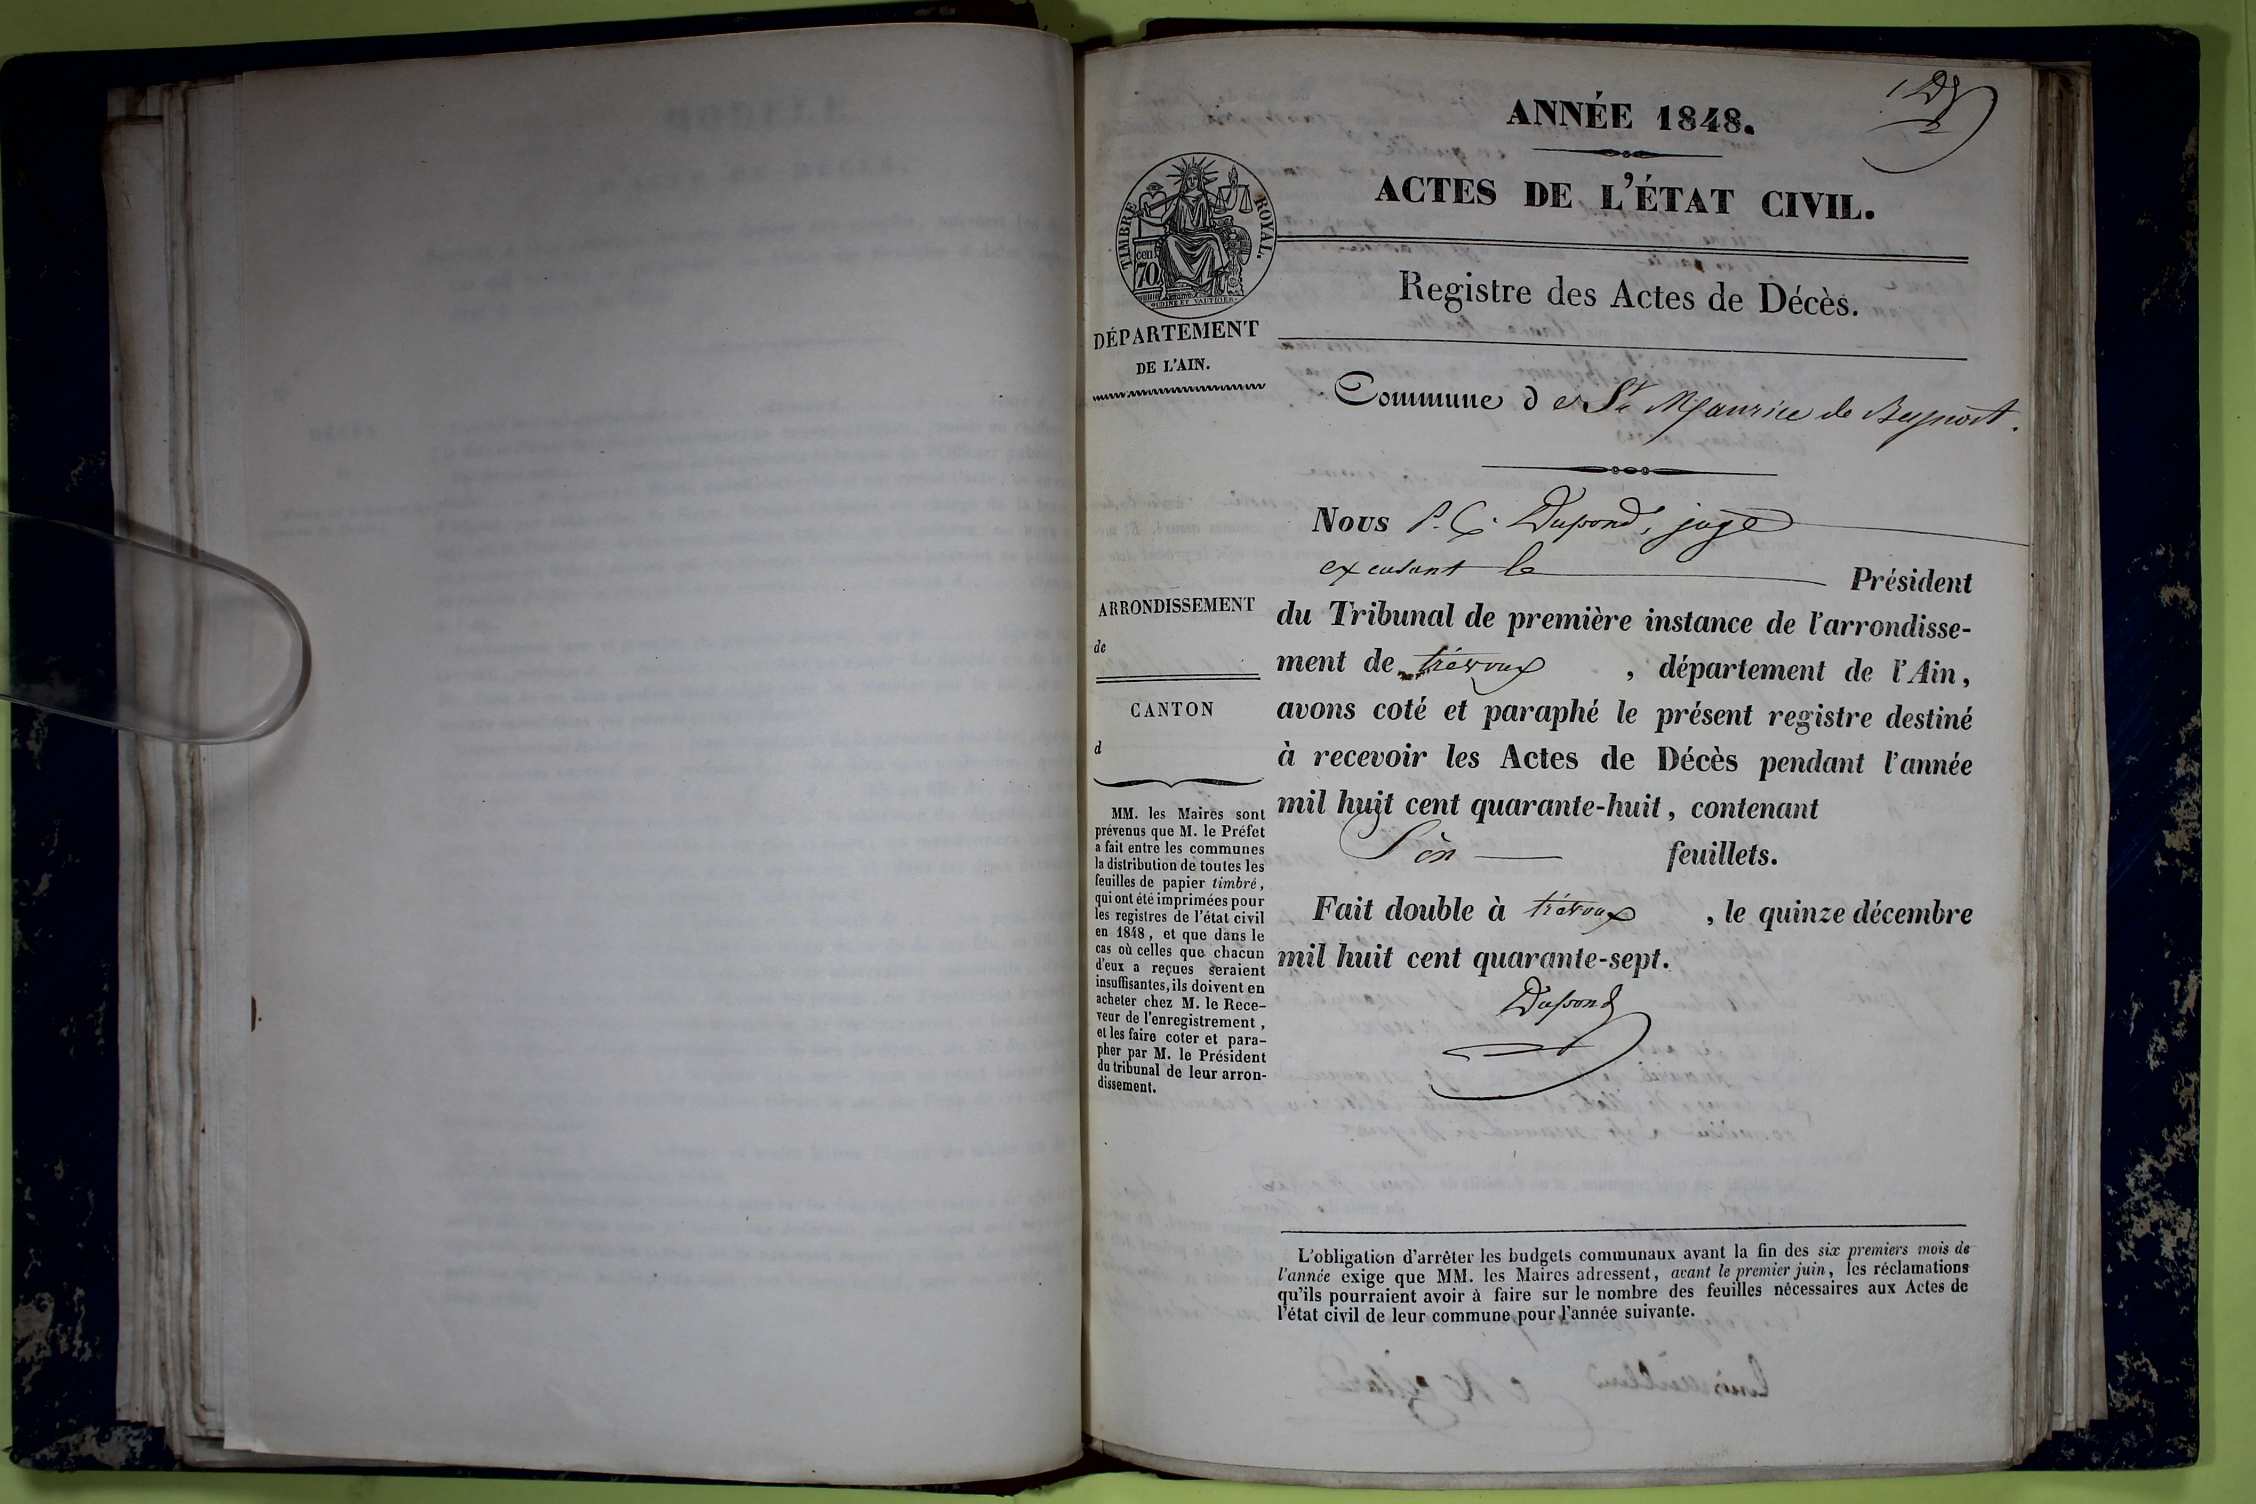 1 D
ANNÉE 1848.
ACTES DE L'ÉTAT CIVIL.
TIMBRE ROYAL.
cen 70
Registre des Actes de Décès.
DÉPARTEMENT
DE L'AIN.
Commune de St Maurice de Beynost.
Nous P. C. Dupond, juge
excusant le Président
du Tribunal de première instance de l'arrondisse-
ment de trévoux , département de l'Ain,
avons coté et paraphé le présent registre destiné
à recevoir les Actes de Décès pendant l'année
mil huit cent quarante-huit, contenant
feuillets.
Fait double à trévoux , le quinze décembre
mil huit cent quarante-sept.
Dupond
ARRONDISSEMENT
de
CANTON
d
MM. les Maires sont
prévenus que M. le Préfet
a fait entre les communes
la distribution de toutes les
feuilles de papier timbré,
qui ont été imprimées pour
les registres de l'état civil
en 1848, et que dans le
cas où celles que chacun
d'eux a reçues seraient
insuffisantes, ils doivent en
acheter chez M. le Rece-
veur de l'enregistrement,
et les faire coter et para-
pher par M. le Président
du tribunal de leur arron-
dissement.
L'obligation d'arrêter les budgets communaux avant la fin des six premiers mois de
l'année exige que MM. les Maires adressent, avant le premier juin, les réclamations
qu'ils pourraient avoir à faire sur le nombre des feuilles nécessaires aux Actes de
l'état civil de leur commune pour l'année suivante.